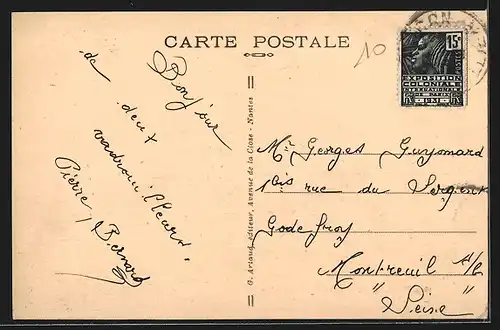 CARTE POSTALE
10
15c
POSTES
EXPOSITION
COLONIALE
INTERNATIONALE
DE PARIS
1931
Bonjour
de deux
vadrouilleurs.
Pierre, Bernard
G. Artaud, éditeur, Avenue de la Close - Nantes
Mr Georges Guyomard
1 bis rue du Sergent
Godefroy
Montreuil s/s
" Seine "